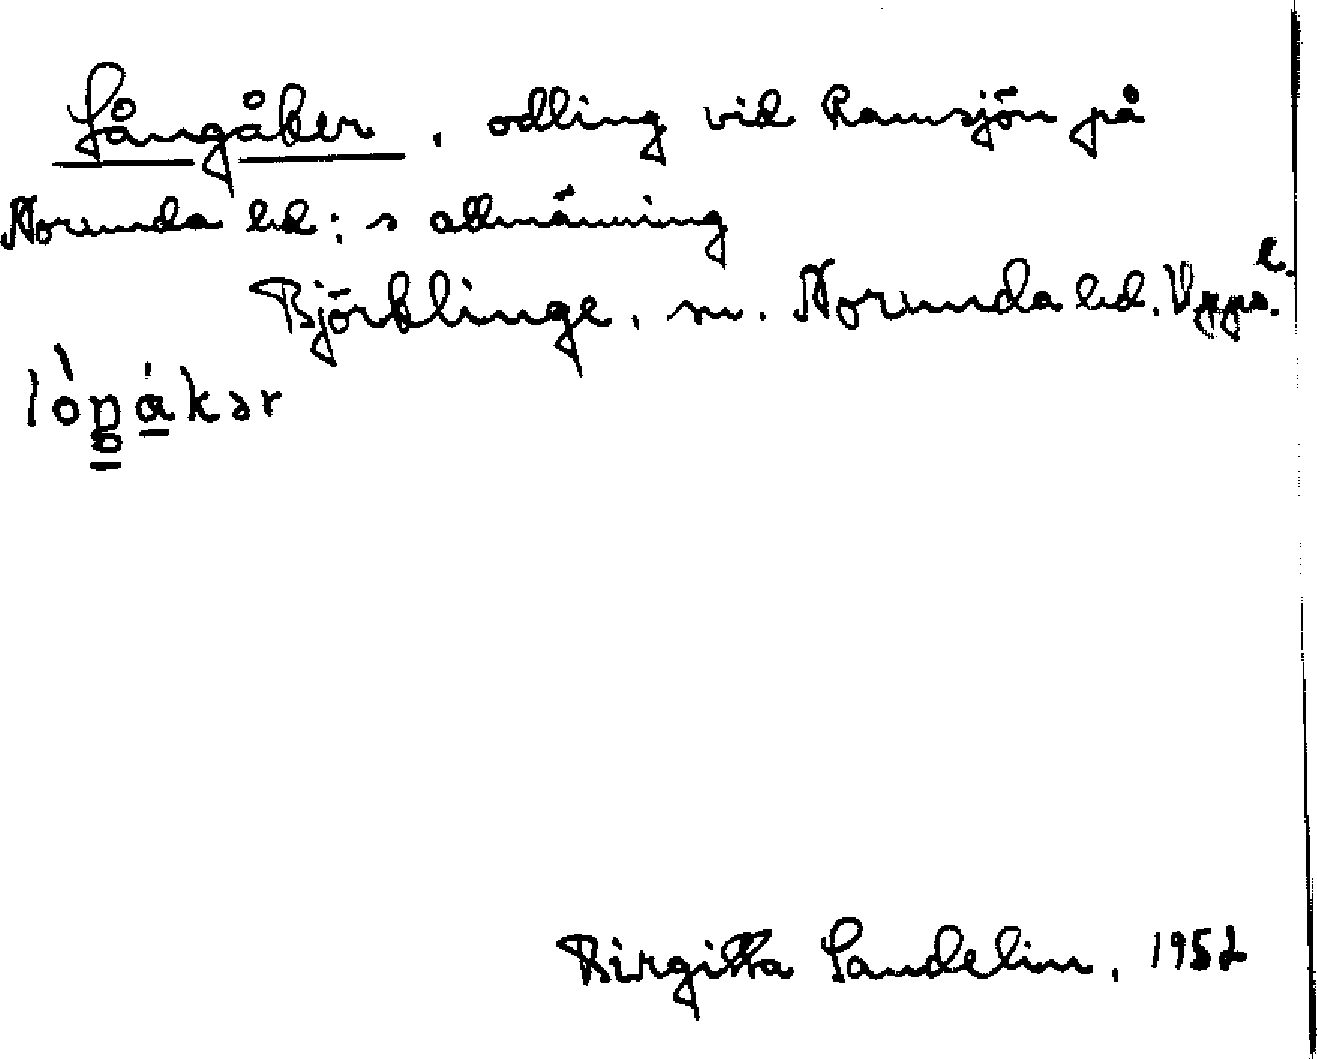 Långåker, odling vid Ramsjön på
Norunda hd:s allmänning
Björklinge, sn. Norunda hd. Upps. l.
Birgitta Sandelin, 1952